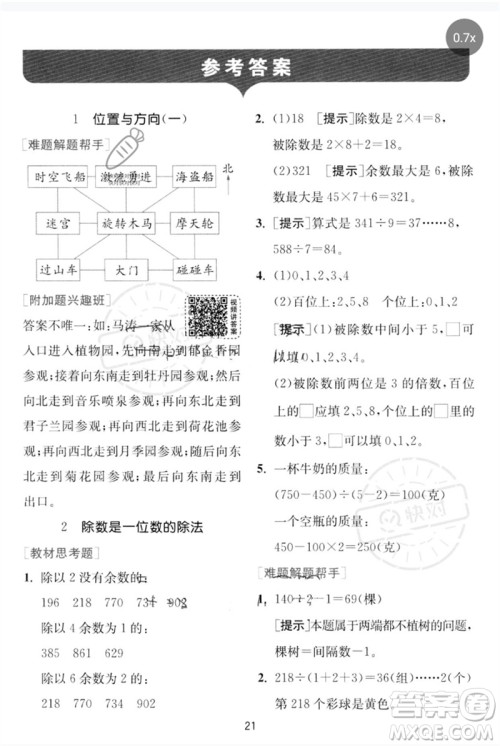 0.7x
参考答案
1 位置与方向(一)
[难题解题帮手]
时空飞船 激流勇进 海盗船 北
迷宫 旋转木马 摩天轮
过山车 大门 碰碰车
[附加题兴趣班]
视频讲答案
答案不唯一:如:马涛一家从
入口进植物园,向北走到郁金香园
参观;再向西北走到牡丹园参观;
再向东北走到音乐喷泉参观;再向东南走到
君子兰园参观;再向东北走到荷花池参
观;再向西北走到月季园参观;再向西
走到菊花园参观;再向西南走到
出口。
2 除数是一位数的除法
[教材思考题]
1. 除以2没有余数的:
196 218 770 734 902
除以4余数为1的:
385 861 629
除以6余数为2的:
218 770 734 902
2. (1)18 [提示]除数是2×4=8,
被除数是2×8+2=18。
(2)321 [提示]余数最大是6,被除数
最大是45×7+6=321。
3. [提示]算式是341÷9=37……8,
588÷7=84。
4. (1)0、1、2、3、4
(2)百位上:2、5、8 个位上:0、1、2
[提示](1)被除数中间小于5,□可
以填0、1、2、3、4。
(2)被除数前两位是3的倍数,百位上
□里可以填2、5、8。个位上的□里的
数小于3,□可以填0、1、2。
5. 一杯牛奶的质量:
(750-450)÷(5-3)=150(克)
一个空瓶的质量:
450-100×2=250(克)
[难题解题帮手]
1. 140÷2-1=69(棵)
[提示]本题属于两端都不植树的问题,
棵树=间隔数-1。
2. 218÷(1+2+3)=36(组)……2(个)
第218个彩球是黄色。
21
快对
答案圈
MXQE.COM